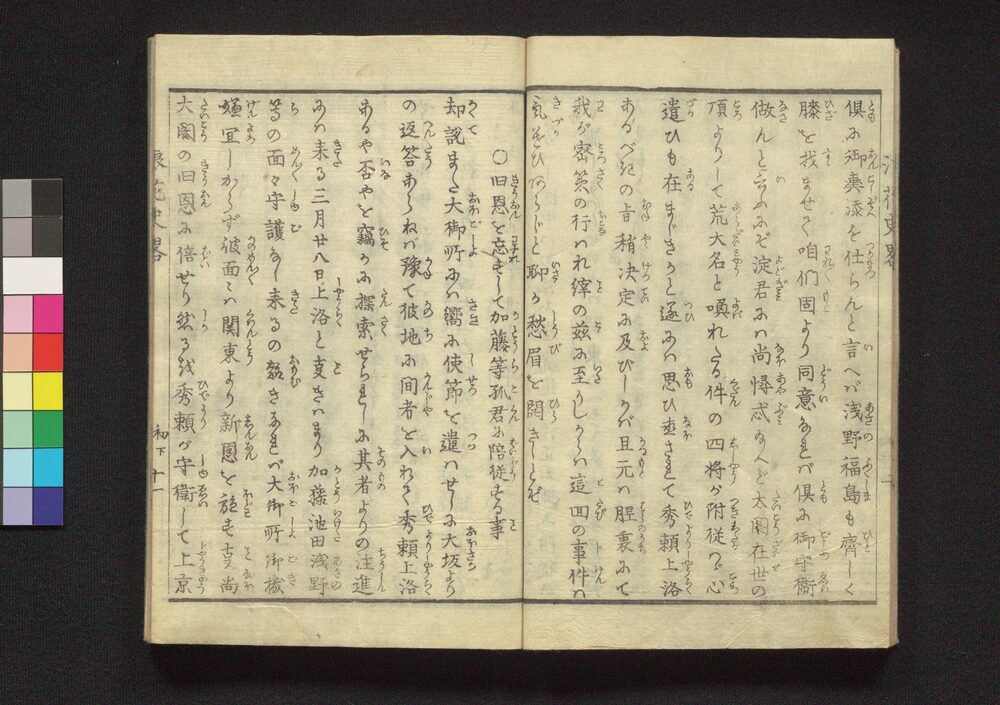 倶に御輿添を仕らんと言へバ浅野福島も齊しく
膝を找ませて咱們固より同意なれバ倶に御守衛
做んと言ふにぞ淀君にハ尚憚忒なへど太閤在世の
頂よりして荒大名と喚れたる件の四将が附従へバ心
遣ひも在まじきかと遂にハ思ひ埀されて秀頼上洛
あるべきの旨稍决定に及びしかバ且元ハ腔裏にて
我が密策の行れ縡の茲に至りしからハ這回の事件ハ
氣遣ひあらじと聊か愁眉を開きしとぞ
○旧恩を忘れずして加藤等孤君に陪従する事
却説また大御所にハ嚮に使節を遣ハせしに大坂より
の返答あらねバ豫て彼地に间者を入れて秀頼上洛
あるや否やを竊かに探索せられしに其者よりの注進
にハ来る三月廿八日上洛と支きハまり加藤池田浅野
等の面々守護なし来るの趣きなれバ大御所御機
嫌宜しからず彼面々ハ関東より新恩を施す支尚
大閤の旧恩に倍せり然るを秀頼が守衛して上京
浪花史畧
初下
十一